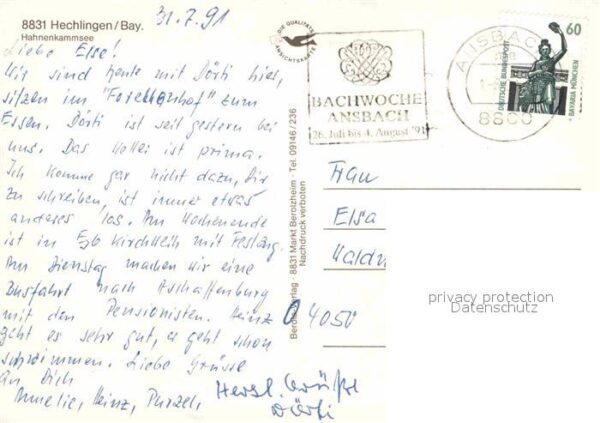 8831 Hechlingen/Bay.
Hahnenkammsee
31.7.91
Liebe Else!
Wir sind heute mit Dörti hier,
sitzen im "Forellenhof" zum
Essen. Dörti ist seit gestern bei
uns. Das Wetter ist prima.
Ich komme gar nicht dazu, Dir
zu schreiben, ist immer etwas
anderes los. Am Wochenende
ist in Kirchweih mit
Am Dienstag machen wir eine
Busfahrt nach Aschaffenburg
mit den Pensionisten. Heinz
geht es sehr gut, er geht schon
schwimmen. Liebe Grüsse
an Dich
Annelie, Heinz, Purzel,
Herzl. Grüße
Dörti
DIE QUALITÄTS
ANSICHTSKARTE
BACHWOCHE
ANSBACH
26. Juli bis 4. August '91
ANSBACH
8800
60
DEUTSCHE BUNDESPOST
BAVARIA MÜNCHEN
Berolin-Verlag · 8831 Markt Berolzheim · Tel. 09146/236
Nachdruck verboten
Frau
Elsa
Waldn
O 4050
privacy protection
Datenschutz